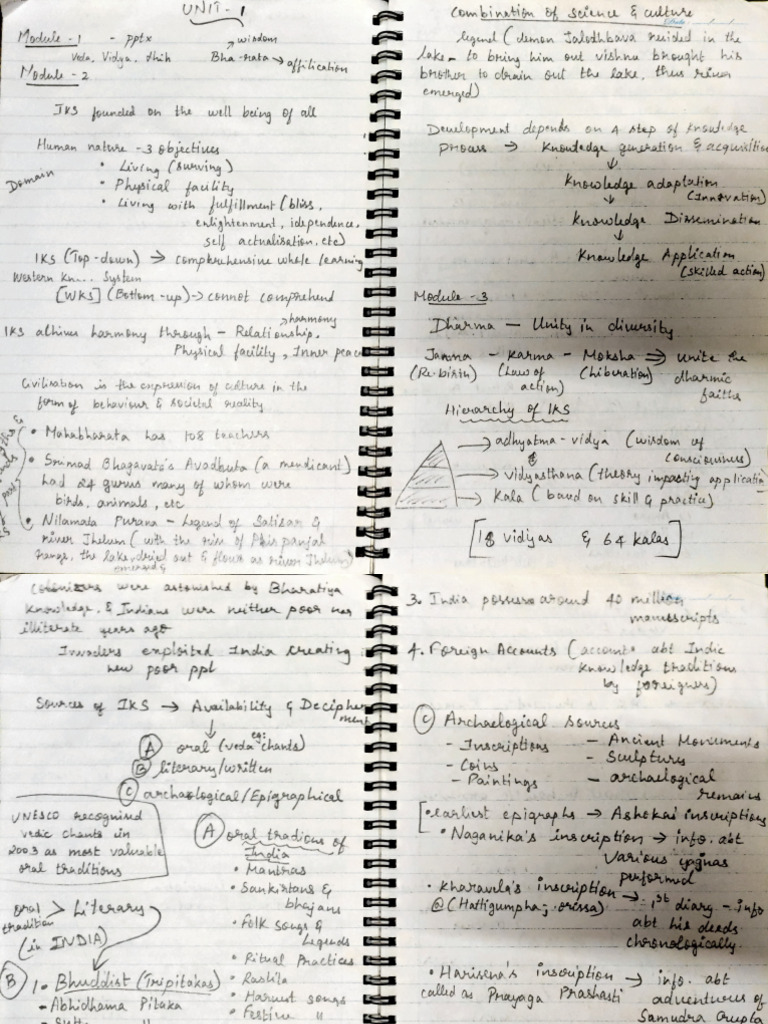 UNIT-1
Module-1 - pptx → wisdom
Veda, Vidya, Bha-rata → affilication
Module-2
IKS founded on the well being of all
Human nature -3 objectives
Domain
• Living (surving)
• Physical facility
• Living with fulfillment (bliss,
enlightenment, idependence,
self actualisation, etc)
IKS (Top-down) → comphrehensive whole learning
Western Kn... System
[WKS] (Bottom-up) → cannot comprehend
→ harmony
IKS athives harmony through - Relationship,
Physical facility, Inner peace
Civilisation is the expression of culture in the
form of behaviour & societal reality
• Mahabharata has 108 teachers
• Srimad Bhagavata's Avadhuta (a mendicant)
had 24 gurus many of whom were
birds, animals, etc
• Nilamata Purana - Legend of Satisar &
river Jhelum (with the rise of Phir panjal
range, the lake dried out & flows as river Jhelum)
emerged
Combination of science & culture
legend (demon Jalodhbava resided in the
lake - to bring him out vishnu brought his
brother to drain out the lake, thus river
emerged)
Development depends on 4 step of knowledge
process → Knowledge generation & acquisition
↓
Knowledge adaptation
(Innovation)
↓
Knowledge Dissemination
↓
Knowledge Application
(skilled action)
Module-3
Dharma - Unity in diversity
Janma - Karma - Moksha ⇒ unite the
(Re-birth) (Law of action) (Liberation) dharmic faiths
Hierarchy of IKS
→ adhyatma-vidya (wisdom of
consciousness)
→ vidyasthana (theory imparting application)
→ Kala (based on skill & practice)
[18 vidiyas & 64 kalas]
Colonizers were astonished by Bharatiya
knowledge, & Indians were neither poor nor
illiterate years ago
Invaders exploited India creating
new poor ppl
Sources of IKS → Availability & Decipherment
↓ eg:
Ⓐ oral (veda chants)
Ⓑ literary/written
Ⓒ archaeological/Epigraphical
UNESCO recognised
vedic chants in
2003 as most valuable
oral traditions
Ⓐ oral tradions of
India
• Mantras
• Sankirtans &
bhajans
• Folk songs &
Legends
• Ritual Practices
• Raslila
• Harvest songs
• Festive "
oral tradition > Literary
(in INDIA)
Ⓑ 1. Bhuddist (Tripitakas)
- Abhidhama Pitaka
- Sutta "
3. India possess around 40 million
manuscripts
4. Foreign Accounts (accounts abt Indic
knowledge traditions
by foreigners)
Ⓒ Archaelogical sources
- Inscriptions - Ancient Monuments
- Coins - Sculptures
- Paintings - archaelogical
remains
[• earliest epigraphs → Ashoka's inscriptions
• Naganika's inscription → info. abt
various yagnas
performed
• Kharavela's inscription → 1st diary - info
@ (Hattigumpha; orissa) abt his deeds
chronologically.
• Harisena's inscription → info. abt
called as Prayaga Prashasti adventures of
Samudra Gupta